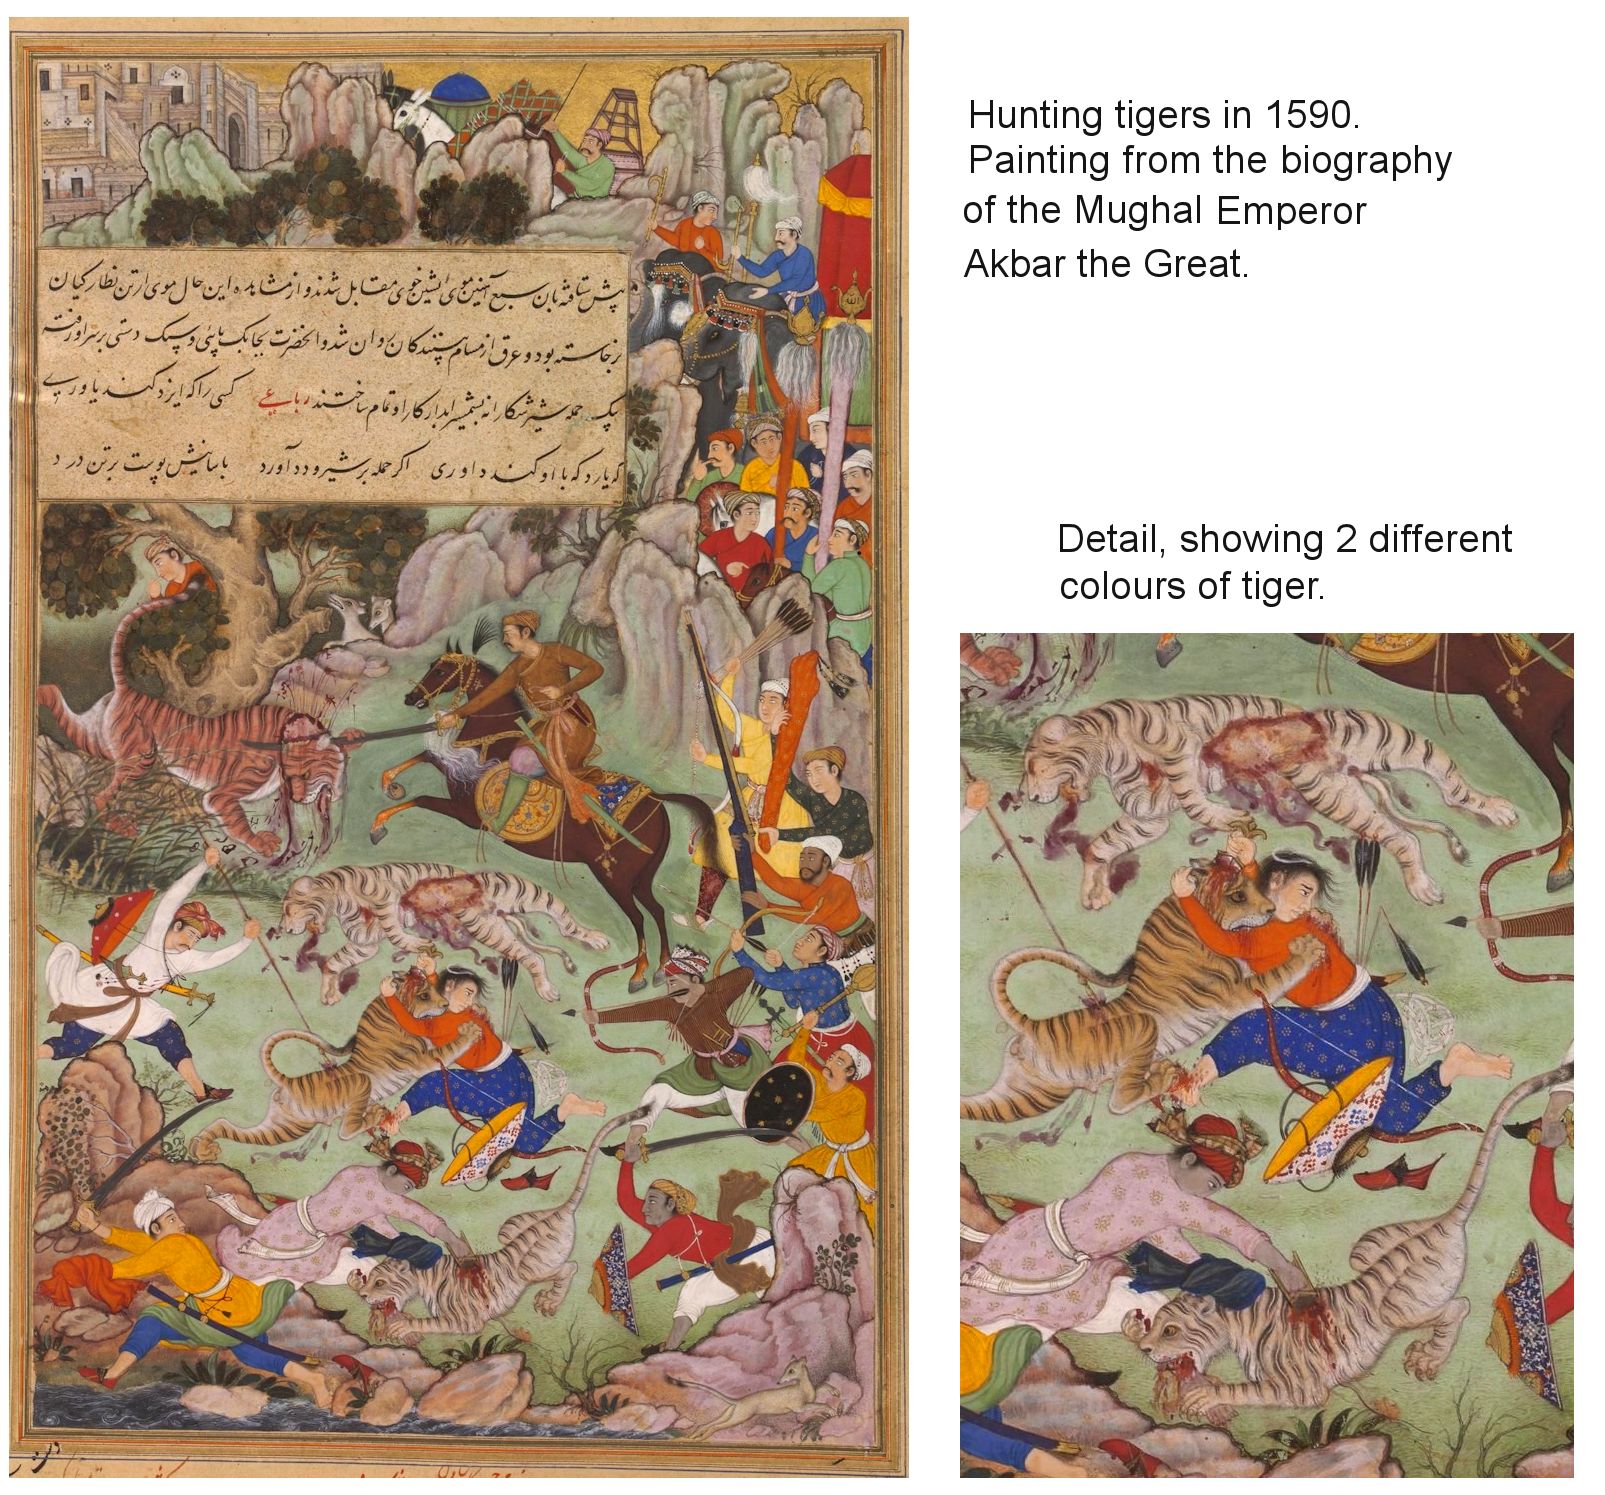 پیش شتافته بآن سبع آهنین موی آتشین خوی مقابل شدند و از مشاهده این حال موی از تن نظارگیان
برخاسته بود و عرق از مسام بینندگان روان شد و آنحضرت بچابک پائی و سبک دستی
یک حمله شیر شکارانه بشمشیر آبدار کار او تمام ساختند رباعی کسی را که ایزد کند یاوری
که یارد که با او کند داوری اگر حمله بر شیر و دد آورد
در تن بر پوست
Hunting tigers in 1590.
Painting from the biography
of the Mughal Emperor
Akbar the Great.
Detail, showing 2 different
colours of tiger.